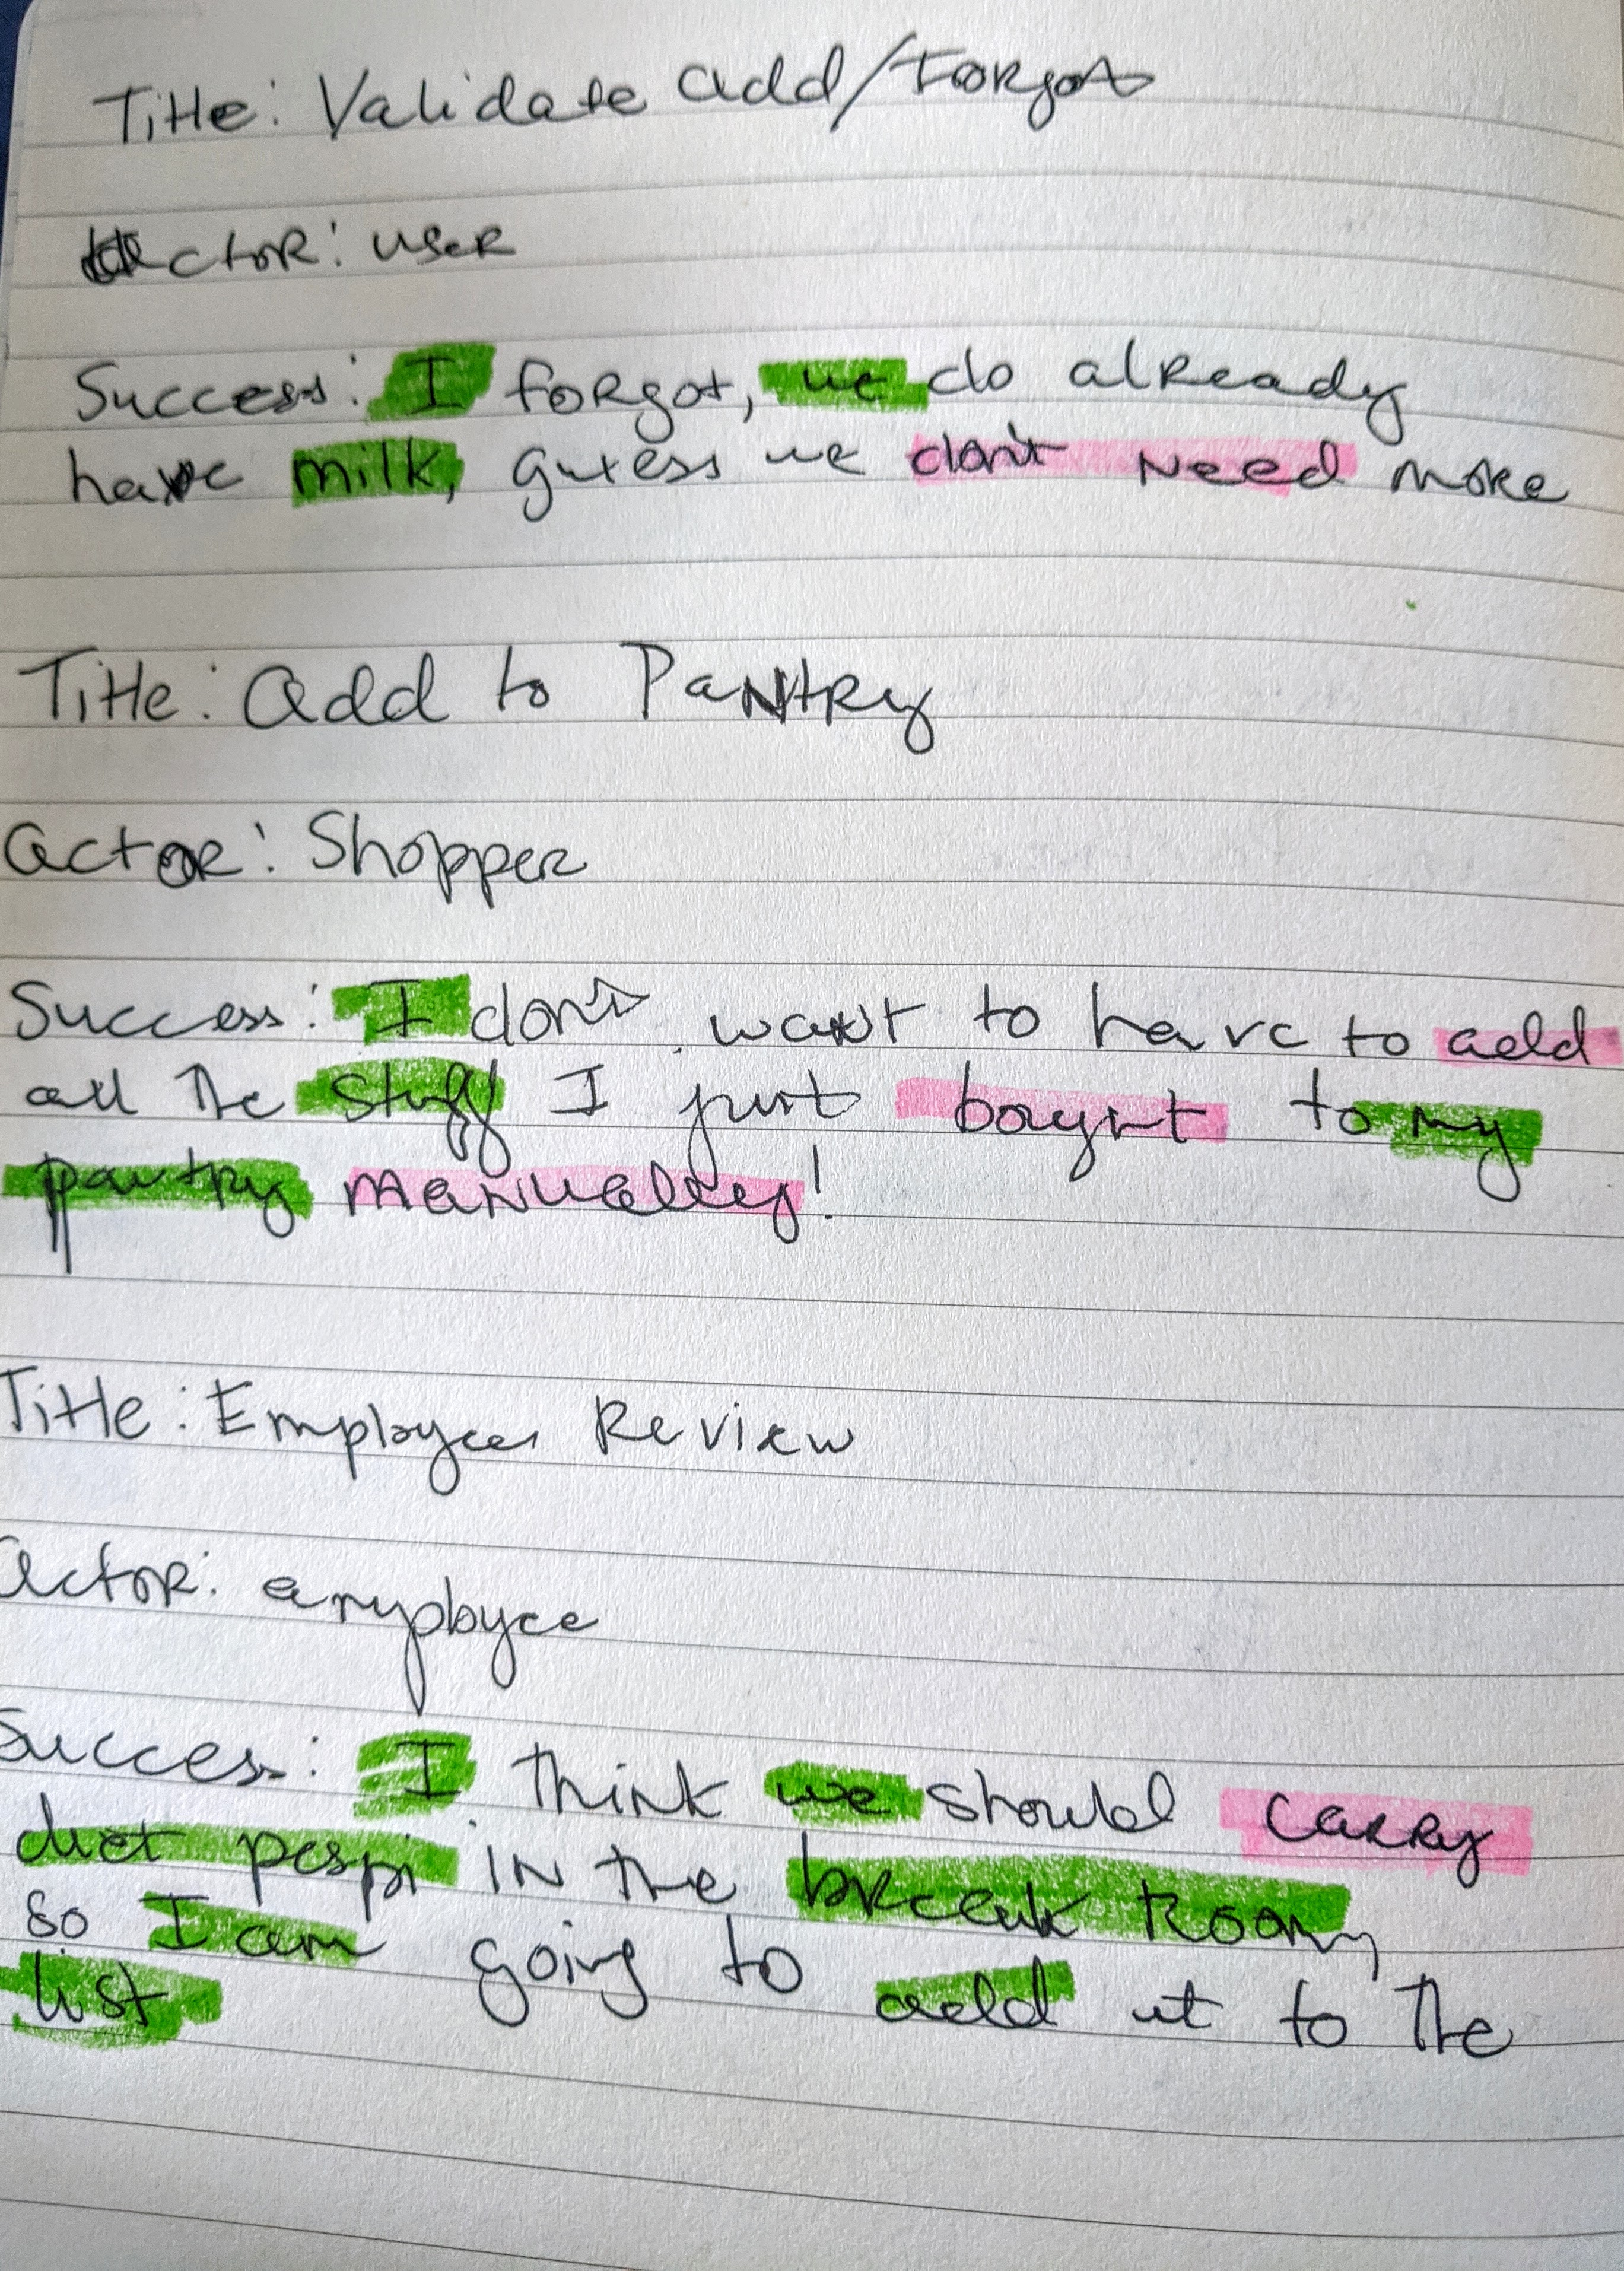 Title: Validate add/Forgot
actor: user
Success: I forgot, we do already
have milk, guess we don't need more
Title: add to Pantry
actor: Shopper
Success: I don't want to have to add
all the stuff I just bought to my
pantry manually!
Title: Employees Review
actor: employee
Success: I think we should carry
diet pespi in the break room,
so I am going to add it to the
list